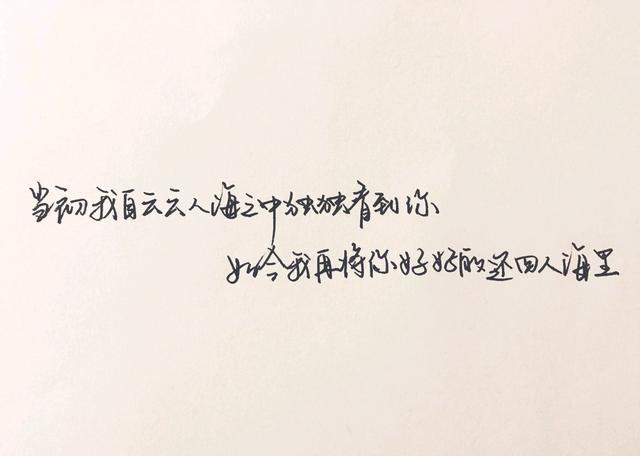 当初我自云云人海之中独独看到你
如今我再将你好好的还回人海里